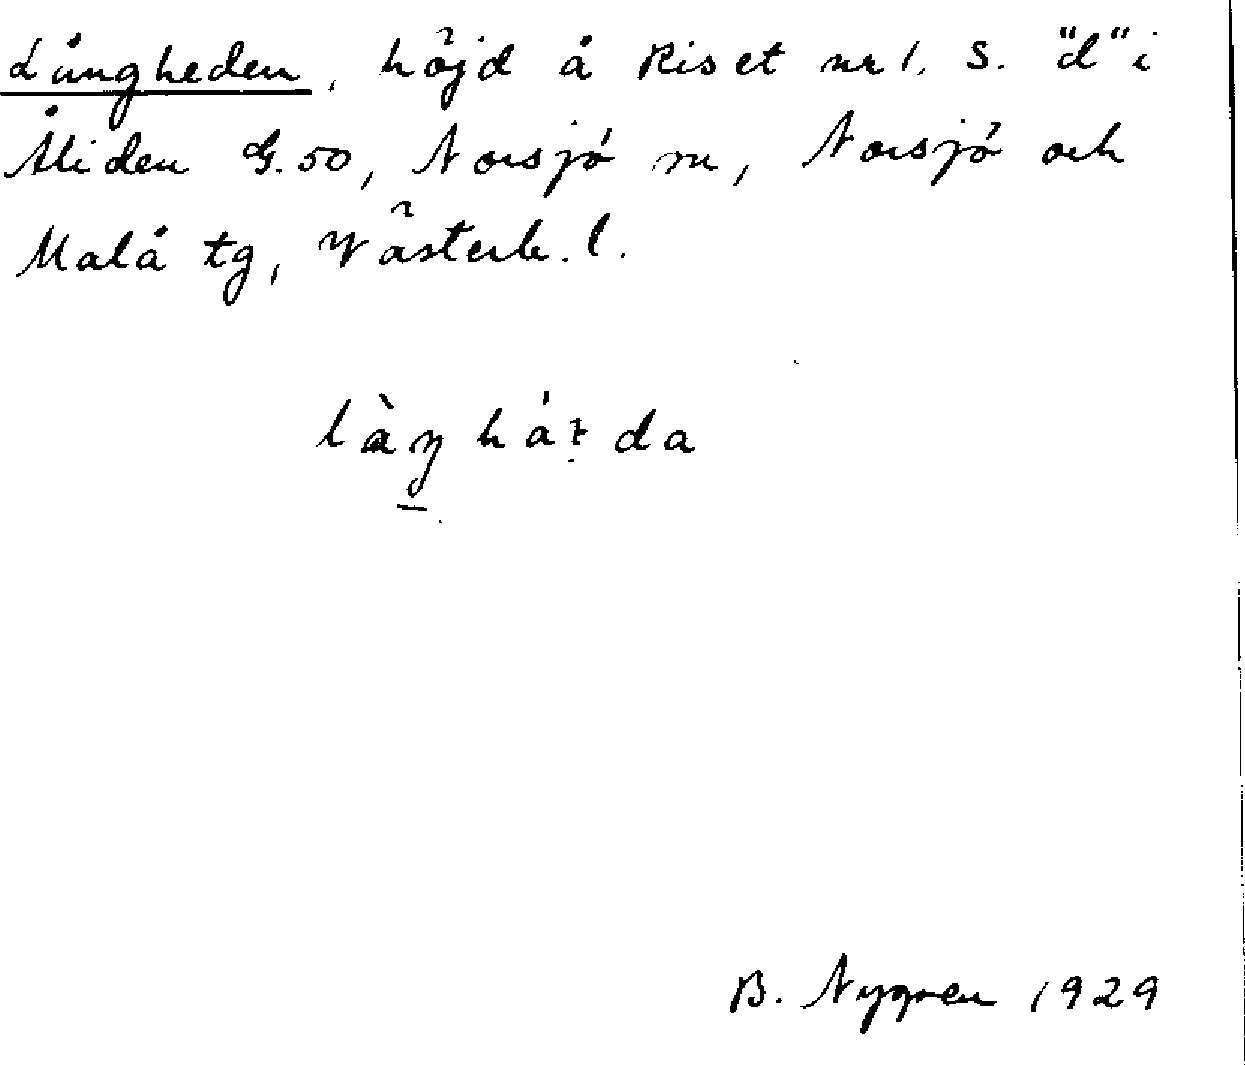 Långheden, höjd å Riset nr 1. S. "d" i
Åliden G.50, Norsjö sn, Norsjö och
Malå tg, Västerb. l.
B. Nygren 1929